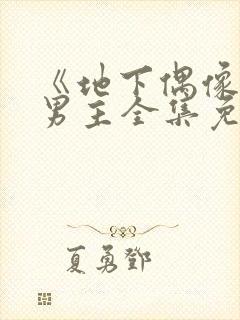 《地下偶像
男主全集免
夏勇鄧